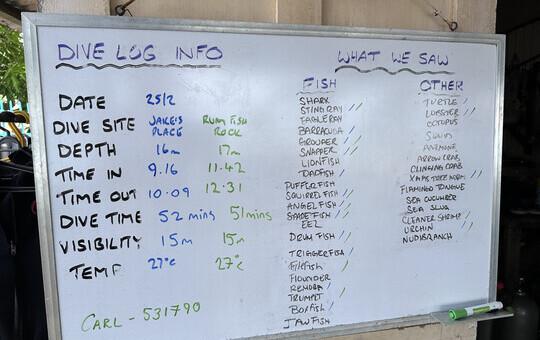 DIVE LOG INFO
DATE 25/2
DIVE SITE JAKE'S PLACE RUM FISH ROCK
DEPTH 16m 17m
TIME IN 9.16 11.42
TIME OUT 10.09 12:31
DIVE TIME 52 mins 51 mins
VISIBILITY 15m 15m
TEMP 27°c 27°c
CARL - 531790
WHAT WE SAW
FISH
SHARK
STINGRAY //
EAGLERAY
BARRACUDA /
GROUPER //
SNAPPER //
LIONFISH
TOADFISH /
PUFFERFISH
SQUIRELFISH //
ANGELFISH //
SPADEFISH //
EEL
DRUM FISH //
TRIGGERFISH /
FILEFISH /
FLOUNDER
REMORA /
TRUMPET /
BOXFISH /
JAWFISH
OTHER
TURTLE /
LOBSTER //
OCTOPUS
SQUID
ANEMONE
ARROW CRAB
CLINGING CRAB
XMAS TREE WORM /
FLAMINGO TONGUE
SEA CUCUMBER
SEA SLUG
CLEANER SHRIMP /
URCHIN /
NUDIBRANCH /